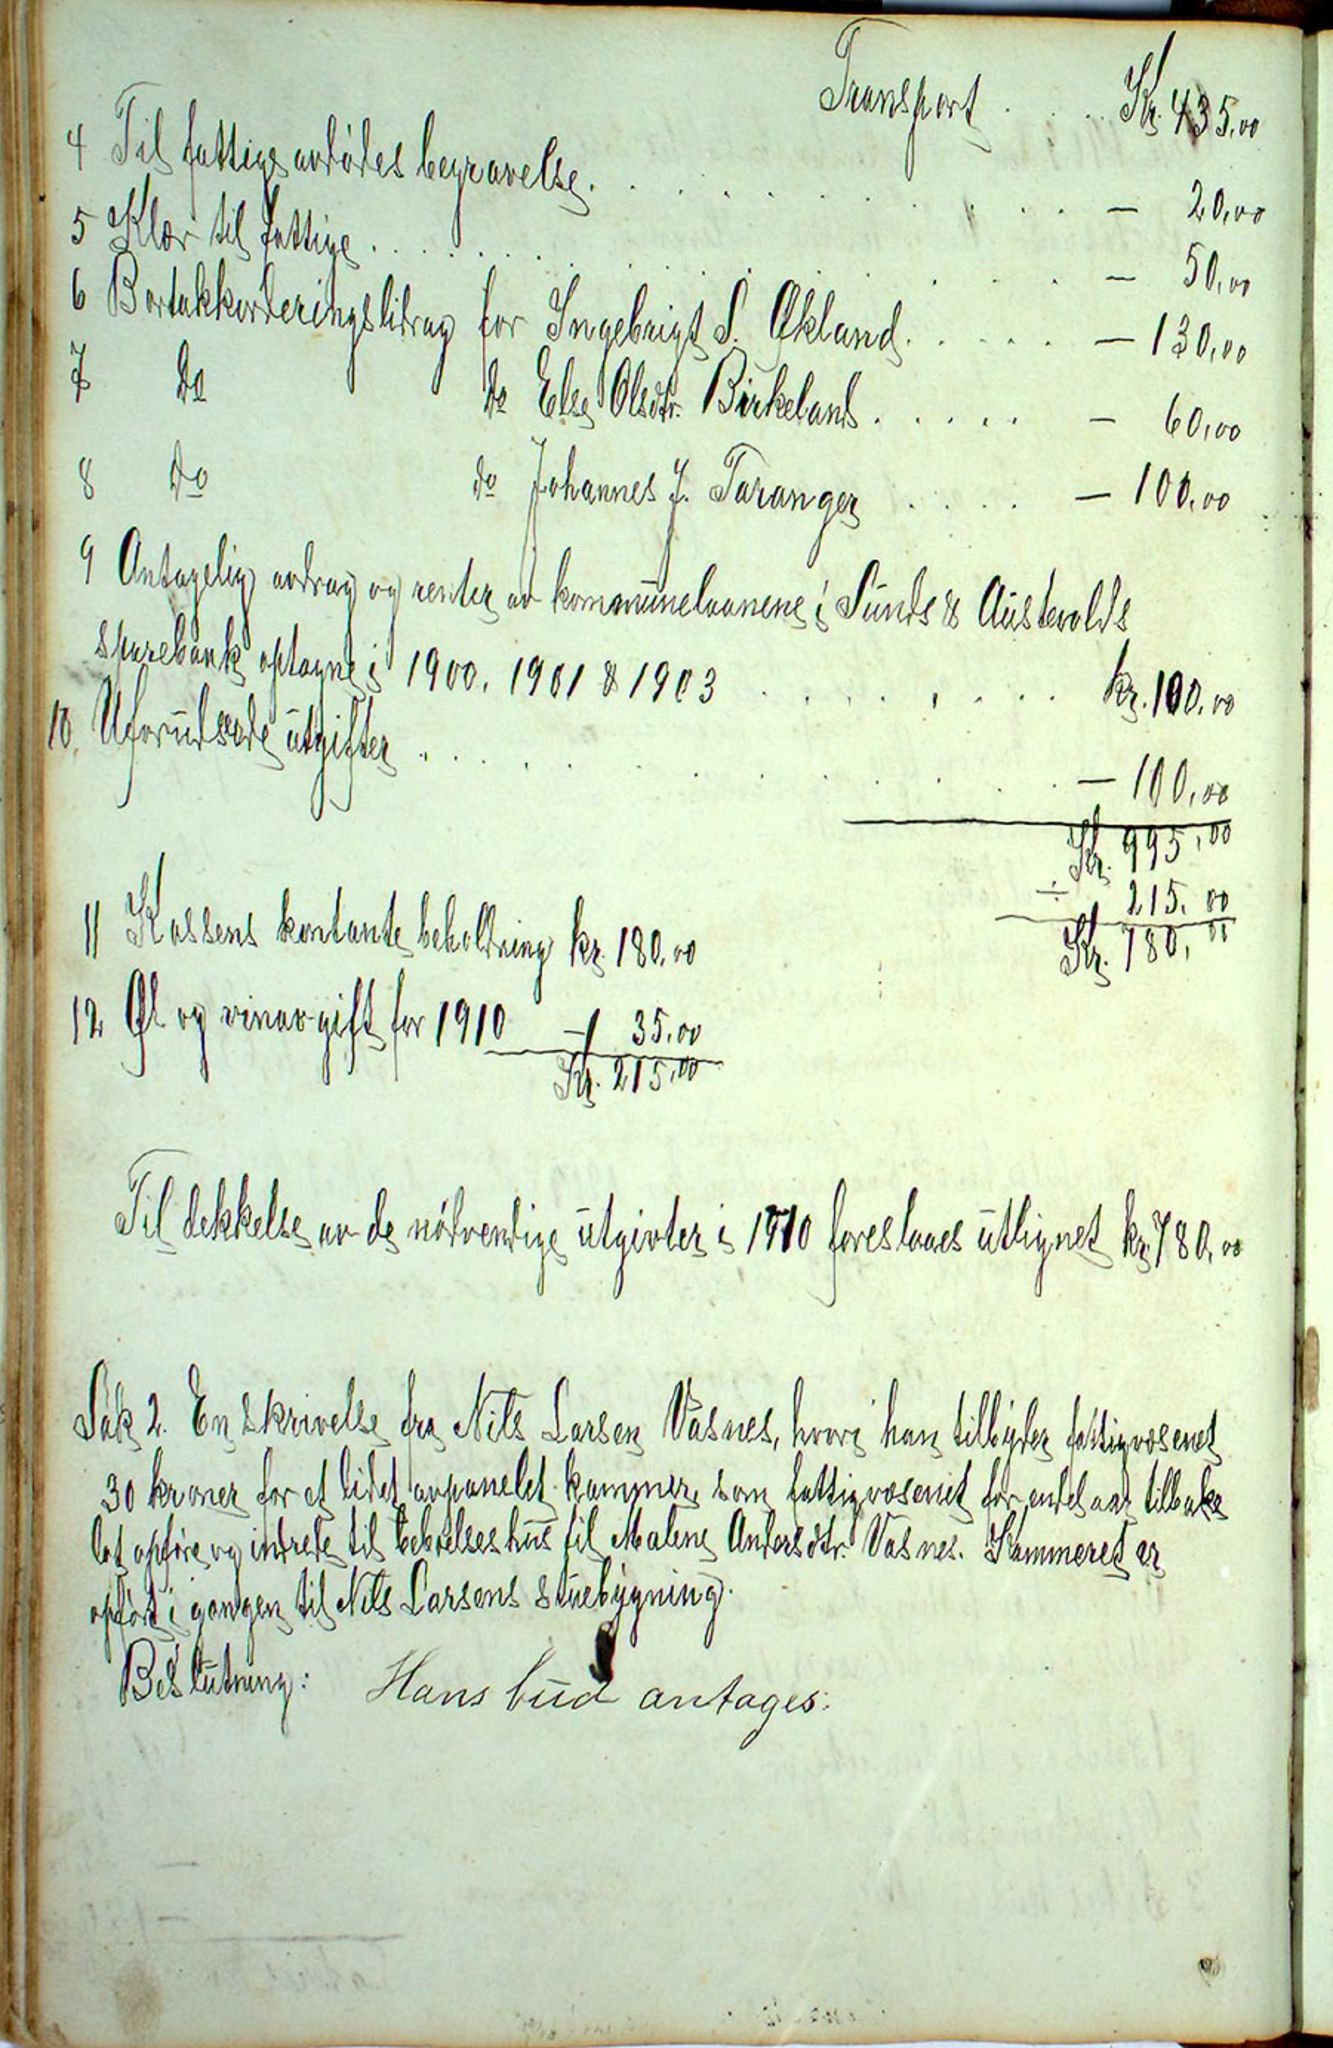 Transport . . . . Kr. 435,00
4 Til fattige avdødes begravelse . . . . . . . . . — 20,00
5 Klær til fattige . . . . . . . . . . . . — 50,00
6 Bortakkorderingsbidrag for Ingebrigt S. Økland . . . . . — 130,00
7 do do Else Olsdtr. Birkeland . . . . . — 60,00
8 do do Johannes J. Taranger . . . . — 100,00
9 Antagelig avdrag og renter av kommunelaanene i Sunds & Austevolds
sparebank optagne i 1900, 1901 & 1903 . . . . . . . . kr. 100,00
10. Uforudseede utgifter . . . . . . . . . . — 100,00
Kr. 995,00
÷ 215,00
Kr. 780,00
11 Kassens kontante beholdning kr. 180,00
12 Øl og vinavgift for 1910 — 35,00
Kr. 215,00
Til dekkelse av de nødvendige utgivter i 1910 foreslaaes utlignet kr. 780,00
Sak 2. En skrivelse fra Nils Larsen Vasnes, hvori han tilbyder fattigvæsenet
30 kroner for et lidet avpanelet kammer, som fattigvæsenet for endel aar tilbake
lot opføre og indrede til beboelseshus til Malene Andersdtr. Vasnes. Kammeret er
opført i gangen til Nils Larsens stuebygning.
Beslutning: Hans bud antages.